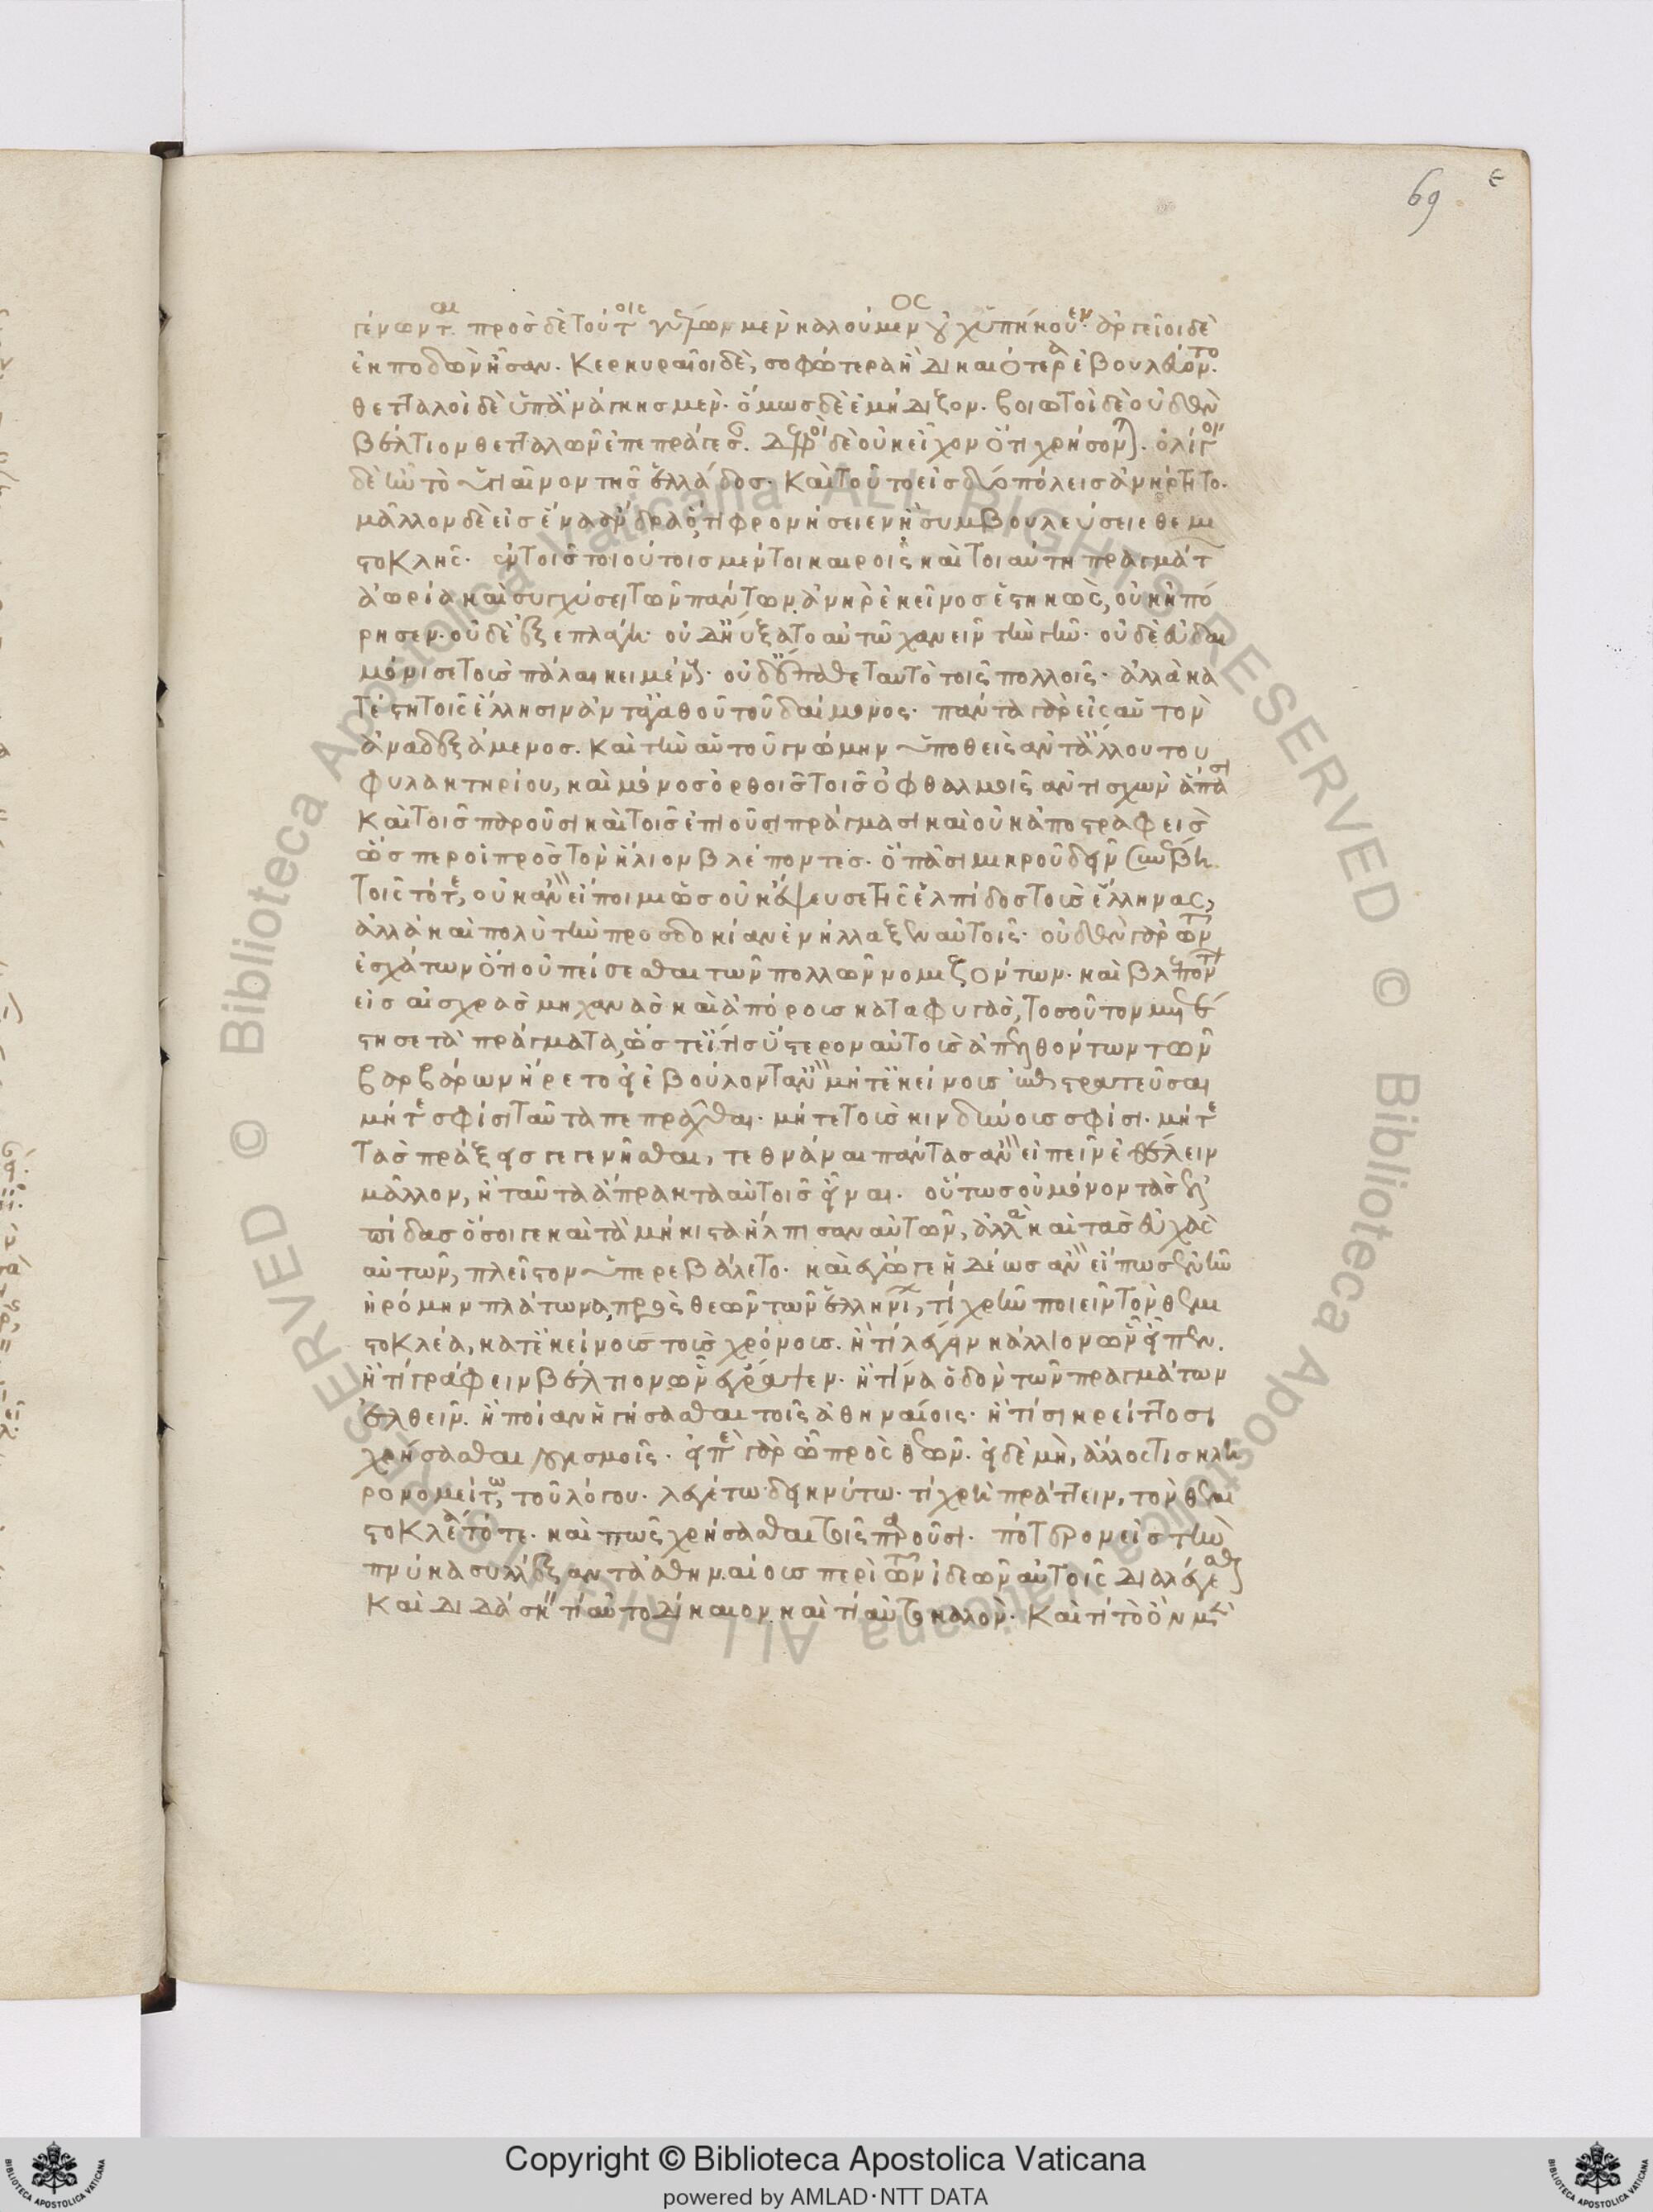 69 ε
γένωνται. πρὸς δὲ τούτοις γέλων μὲν καλούμενος οὐχ ὑπήκουεν. ἀργεῖοι δὲ
ἐκποδὼν ἦσαν. Κερκυραῖοι δὲ, σοφώτερα ἢ δικαιότερα ἐβουλεύοντο.
θετταλοὶ δὲ ὑπ' ἀνάγκης μὲν. ὅμως δὲ ἐμήδιζον. βοιωτοὶ δὲ οὐδὲν
βέλτιον θετταλῶν ἐπεπράγεσαν. δελφοὶ δὲ οὐκ εἶχον ὅτι χρήσονται. ὀλίγον
δὲ ἦν τὸ ὑγιαῖνον τῆς ἑλλάδος. Καὶ τοῦτο εἰς δύο πόλεις ἀνήρτητο.
μᾶλλον δὲ εἰς ἕνα ἄνδρα, ὅτι φρονήσειεν ἢ συμβουλεύσειε θεμι
στοκλῆς. ἐν τοῖς τοιούτοις μέντοι καιροῖς καὶ τοιαύτη πραγμάτων
ἀωρία καὶ συγχύσει τῶν πάντων ἀνὴρ ἐκεῖνος ἑστηκὼς, οὐκ ἠπό
ρησεν. οὐδὲ ἐξεπλάγη. οὐδ' ηὔξατο αὐτῷ χανεῖν τὴν γῆν. οὐδὲ εὐδαι
μόνισε τοὺς πάλαι κειμένους. οὐδ' ἔπαθε ταυτὸ τοῖς πολλοῖς. ἀλλὰ κα
τέστη τοῖς ἕλλησιν ἀντ' ἀγαθοῦ τοῦ δαίμονος. πάντα γὰρ εἰς αὑτὸν
ἀναδεξάμενος. Καὶ τὴν αὑτοῦ γνώμην ὑποθεὶς ἀντ' ἄλλου του
φυλακτηρίου, καὶ μόνος ὀρθοῖς τοῖς ὀφθαλμοῖς ἀντισχὼν ἅπασι
Καὶ τοῖς παροῦσι καὶ τοῖς ἐπιοῦσι πράγμασι καὶ οὐκ ἀποστραφεὶς
ὥσπερ οἱ πρὸς τὸν ἥλιον βλέποντες. ὃ πᾶσι μικροῦ δεῖν συνέβη
τοῖς τότε, οὐκ ἂν εἴποιμι ὡς οὐκ ἔψευσε τῆς ἐλπίδος τοὺς ἕλληνας,
ἀλλὰ καὶ πολὺ τὴν προσδοκίαν ἐνήλλαξεν αὐτοῖς. οὐδὲν γὰρ τῶν
ἐσχάτων ὅτι οὐ πείσεσθαι τῶν πολλῶν νομιζόντων. καὶ βλεπόντων
εἰς αἰσχρὰς μηχανὰς καὶ ἀπόρους καταφυγὰς, τοσοῦτον μετέ
στησε τὰ πράγματα, ὥστ' εἴ τις ὕστερον αὐτοὺς ἀπελθόντων τῶν
βαρβάρων ἤρετο εἰ ἐβούλοντ' ἂν μήτ' ἐκείνους ἐλθεῖν στρατεῦσαι
μήτε σφίσι ταῦτα πεπρᾶχθαι. μήτε τοὺς κινδύνους σφίσι. μήτε
τὰς πράξεις γεγενῆσθαι, τεθνάναι πάντας ἂν εἰπεῖν ἐθέλειν
μᾶλλον, ἢ ταῦτα ἄπρακτα αὐτοῖς εἶναι. οὕτως οὐ μόνον τὰς ἐλ
πίδας ὅσοι γε καὶ τὰ μήκιστα ἤλπισαν αὐτῶν, ἀλλὰ καὶ τὰς εὐχὰς
αὐτῶν, πλεῖστον ὑπερεβάλετο. καὶ ἔγωγε ἡδέως ἂν εἴ πως ἐνῆν
ἠρόμην πλάτωνα, πρὸς θεῶν τῶν ἑλληνίων, τί χρῆν ποιεῖν τὸν θεμι
στοκλέα, κατ' ἐκείνους τοὺς χρόνους. ἢ τί λέγειν κάλλιον ὧν εἶπεν.
ἢ τί γράφειν βέλτιον ὧν ἔγραψεν. ἢ τίνα ὁδὸν τῶν πραγμάτων
ἐλθεῖν. ἢ ποίαν ἡγήσασθαι τοῖς ἀθηναίοις. ἢ τίσι κρείττοσι
χρήσασθαι λογισμοῖς. εἰπὲ γὰρ ὦ πρὸς θεῶν. εἰ δὲ μὴ, ἄλλος τις κλη
ρονομείτω, τοῦ λόγου. λεγέτω δεικνύτω. τί χρὴ πράττειν, τὸν θεμι
στοκλέα τότε. καὶ πῶς χρήσασθαι τοῖς παροῦσι. πότερον εἰς τὴν
πνύκα συλλέξαντα ἀθηναίους περὶ τῶν ἰδεῶν αὐτοῖς διαλέγεσθαι
Καὶ διδάσκειν τί αὐτοδίκαιον καὶ τί αὐτοκαλὸν. Καὶ τί τὸ ὂν μὲν
Copyright © Biblioteca Apostolica Vaticana
powered by AMLAD·NTT DATA
© Biblioteca Apostolica Vaticana ALL RIGHTS RESERVED
© Biblioteca Apostolica Vaticana ALL RIGHTS RESERVED